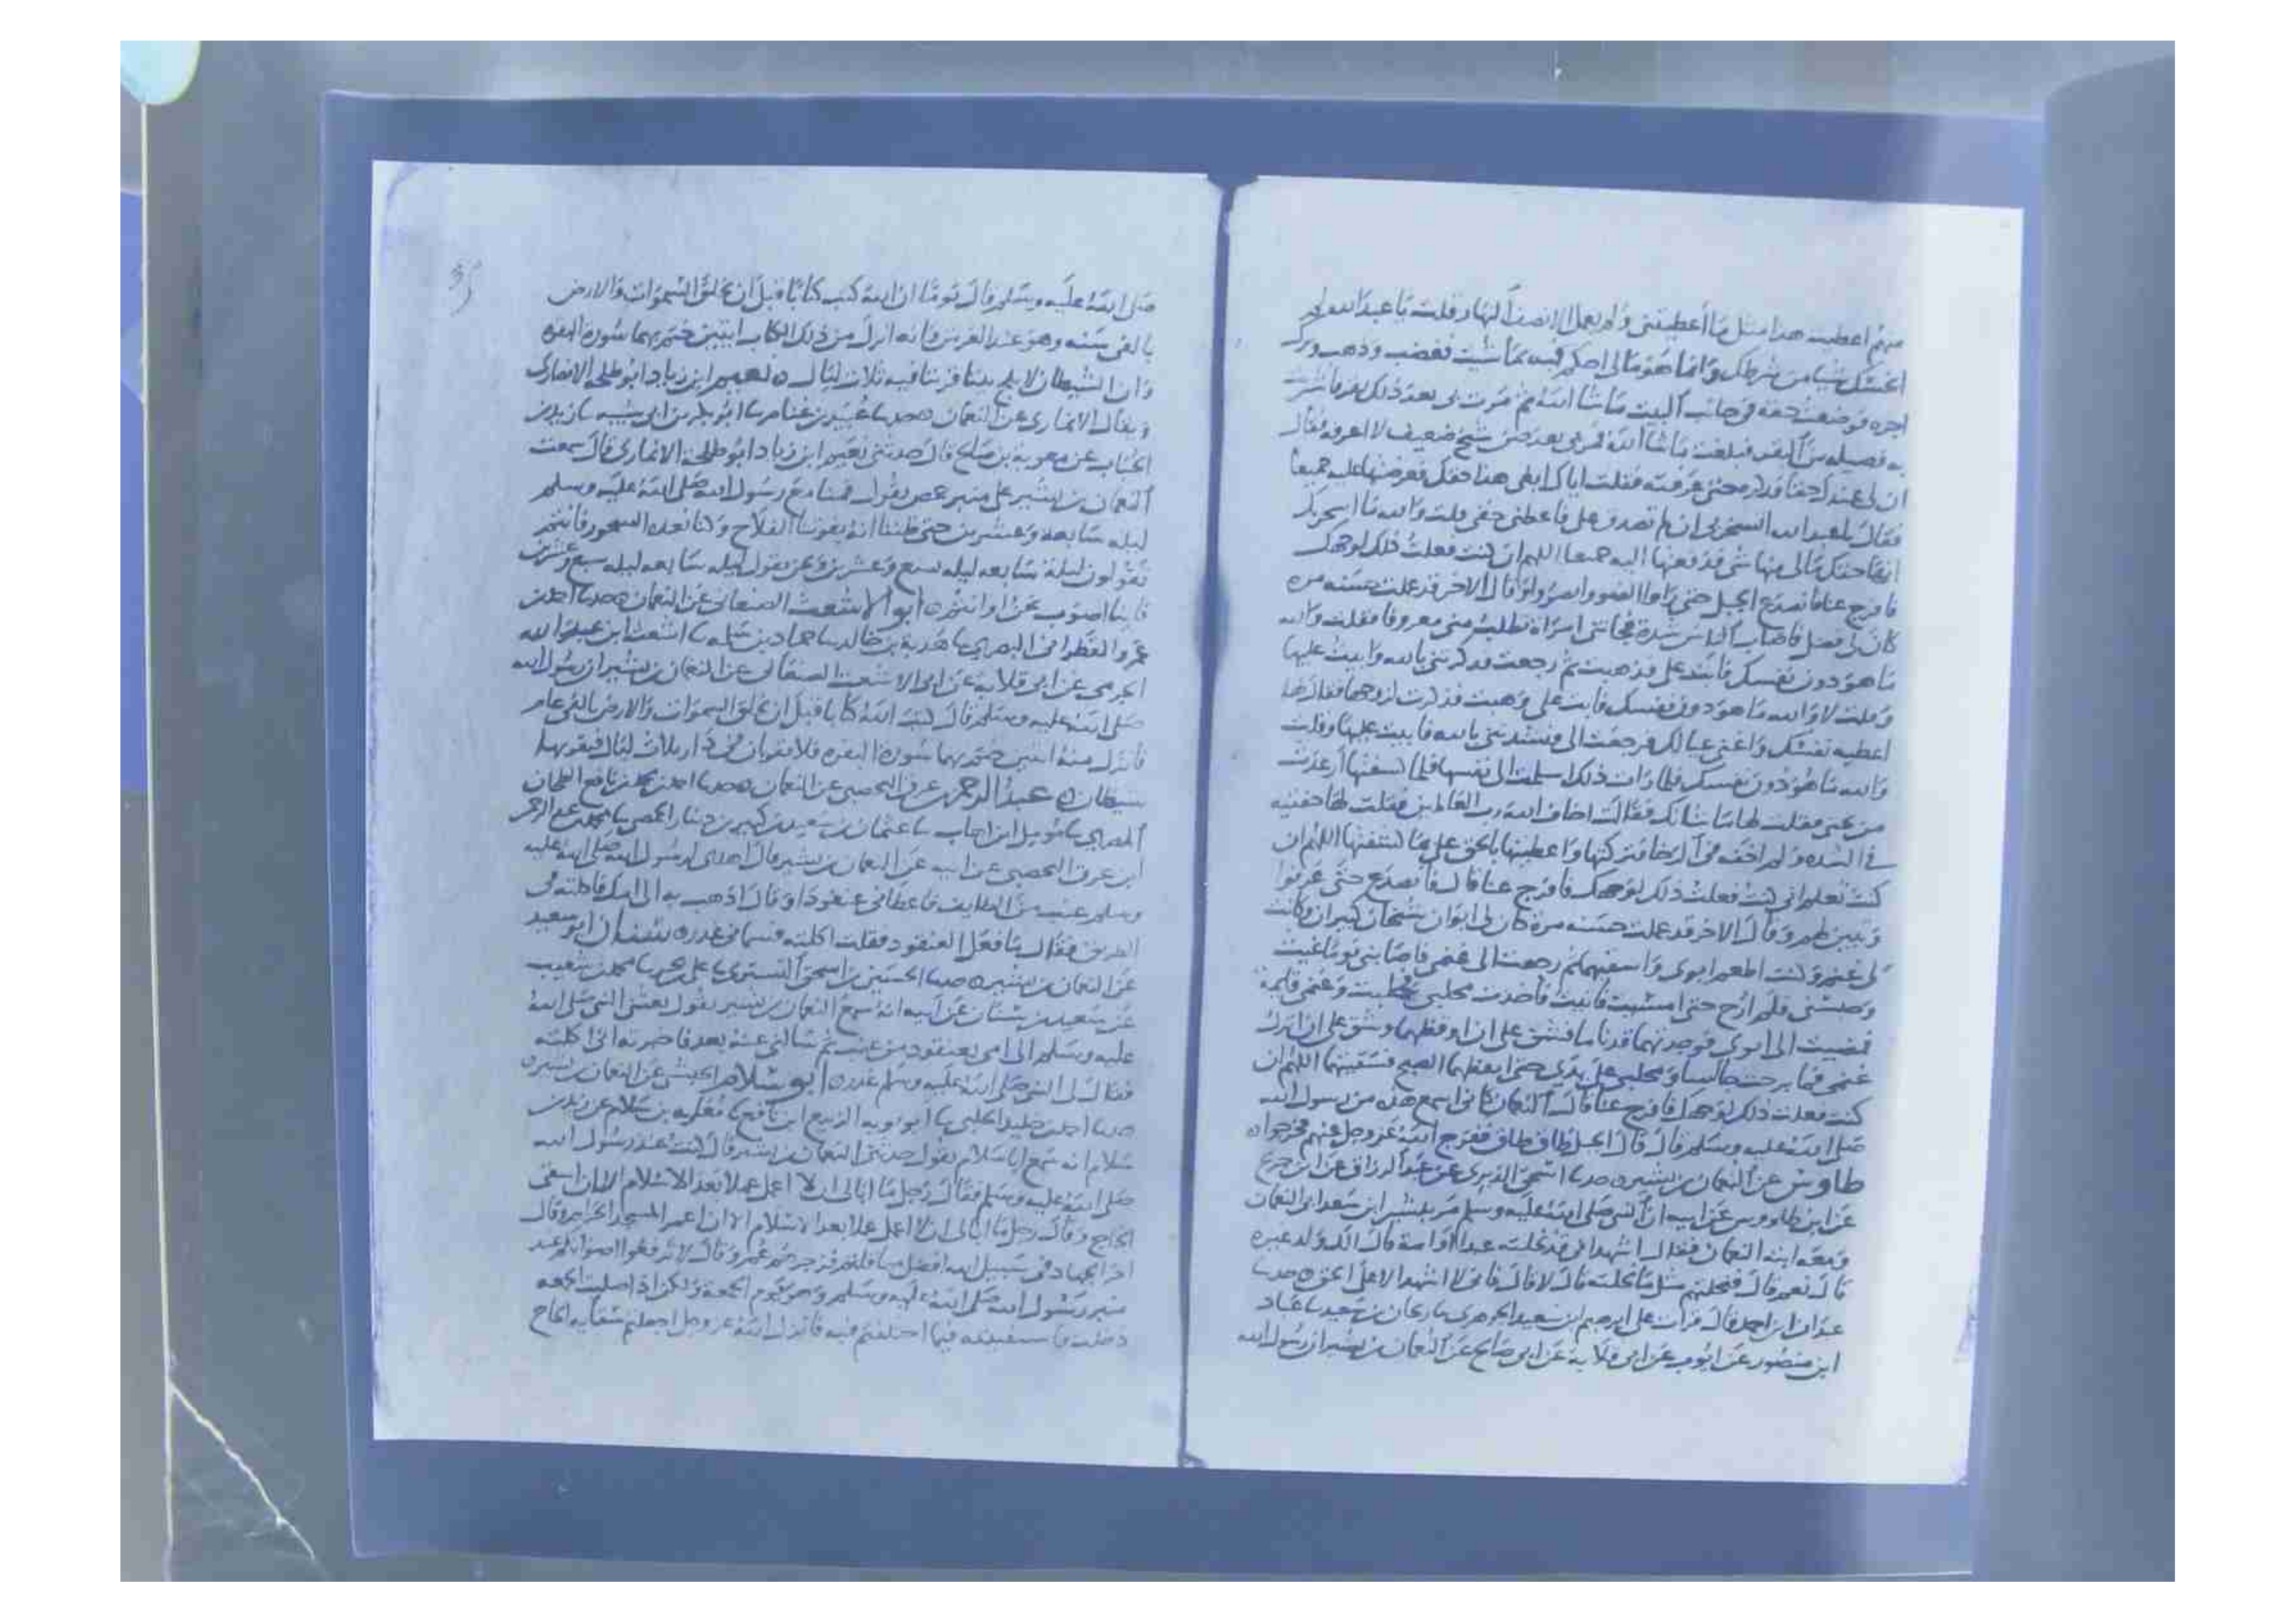 منهم اعطيت هذا مثل ما اعطيتنى ولم يعمل الا نصف النهار فقلت يا عبد الله لم
ابخسك شيا من شرطك وانما هو مالى احكم فيه بما شيت فغضب وذهب وترك
اجره فوضعت حقه فى جانب البيت ما شا الله ثم مرت بى بعد ذلك بقر فاشتريت
به فصيله من البقر فبلغت ما شا الله فمر بى بعد حين شيخ ضعيف لا اعرفه فقال
ان لى عندك حقا فذكره حتى عرفته فقلت اياك ابغى هذا حقك فعرضتها عليه جميعا
فقال يا عبد الله لا تسخر بى ان لم تصدق على فاعطنى حقى قلت والله ما اسخر بك
انها حقك مالى منها شى فدفعتها اليه جميعا اللهم ان كنت فعلت ذلك لوجهك
فافرج عنا فانصدع الجبل حتى راوا الضوء وابصروا وقال الاخر قد عملت حسنه مره
كان لى فضل فاصاب الناس شدة فجاتنى امراة تطلب منى معروفا فقلت والله
ما هو دون نفسك فابت على فذهبت ثم رجعت فذكرتنى بالله وابيت عليها
وقلت لا والله ما هو دون نفسك فابت على وذهبت فذكرت لزوجها فقال لها
اعطيه نفسك واغنى عيالك فرجعت الى فنشدتنى بالله فابيت عليها وقلت
والله ما هو دون نفسك فلما رات ذلك اسلمت الى نفسها فلما كشفتها ارعدت
من تحتى فقلت لها ما شانك فقالت اخاف الله رب العالمين فقلت لها خفتيه
فى الشده ولم اخفه فى الرخا فتركتها واعطيتها بالحق على ما كشفتها اللهم ان
كنت تعلم انى كنت فعلت ذلك لوجهك فافرج عنا قال فانصدع حتى عرفوا
وتبين لهم وقال الاخر قد عملت حسنه مرة كان لى ابوان شيخان كبيران وكانت
لى غنم وكنت اطعم ابوى واسقيهما ثم رجعت الى غنمى فاصابنى يوما غيث
وحبسنى فلم ارح حتى امسيت فاتيت فاخذت محلبى فحلبت وغنمى قايمة
فمضيت الى ابوى فوجدتهما قد ناما فشق على ان اوقظهما وشق على ان اترك
غنمى فما برحت جالسا ومحلبى على يدى حتى ايقظهما الصبح فسقيتهما اللهم ان
كنت فعلت ذلك لوجهك فافرج عنا قال النعمان كانى اسمع هذه من رسول الله
صلى الله عليه وسلم قال قال الجبل طاق طاق ففرج الله عز وجل عنهم فخرجوا ه
طاوس عن النعمان بن بشير ه حدثنا اسحق الدبرى عن عبد الرزاق عن ابن جريج
عن ابن طاووس عن ابيه ان النبى صلى الله عليه وسلم مر ببشير ابن سعد ابى النعمان
ومعه ابنه النعمان فقال اشهد انى قد نحلته عبدا او امة قال الك ولد غيره
قال نعم قال فنحلتهم مثل ما نحلته قال لا قال فانى لا اشهد الا على الحق ه حدثنا
عبدان ابن احمد قال قرات على ابرهيم بن سعيد الجوهرى نا ريحان بن سعيد نا عباد
ابن منصور عن ايوب عن ابى قلابة عن ابى صالح عن النعمان بن بشير ان رسول الله
صلى الله عليه وسلم قال يوما ان الله كتب كتابا قبل ان يخلق السموات والارض
بالفى سنه وهو عند العرش وانه انزل من ذلك الكتاب ايتين ختم بهما سورة البقره
وان الشيطان لا يلج بيتا قرئتا فيه ثلاث ليال ه نعيم ابن زياد ابو طلحه الانمارى
ويقال الانمارى عن النعمان ه حدثنا عبيد بن غنام نا ابو بكر بن ابى شيبه نا زيد بن
الحباب عن معوية بن صالح قال حدثنى نعيم ابن زياد ابو طلحة الانمارى قال سمعت
النعمان بن بشير على منبر حمص يقول قمنا مع رسول الله صلى الله عليه وسلم
ليله سابعة وعشرين حتى ظننا انه يفوتنا الفلاح وكنا نعده السحور فانتم
تقولون ليلة سابعه ليله سبع وعشرين ونحن نقول ليله سابعه ليله سبع وعشرين
فاينا اصوب نحن او انتم ه ابو الاشعث الصنعانى عن النعمان ه حدثنا احمد بن
عمرو القطرانى البصرى نا هدبة بن خالد نا حماد بن سلمه نا اشعث ابن عبد الله
الجرمى عن ابى قلابة عن ابى الاشعث الصنعانى عن النعمان بن بشير ان رسول الله
صلى الله عليه وسلم قال كتب الله كتابا قبل ان يخلق السموات والارض بالفى عام
فانزل منه ايتين ختم بهما سورة البقره فلا تقران فى دار ثلاث ليال فيقربها
شيطان ه عبد الرحمن بن عرق اليحصبى عن النعمان ه حدثنا احمد بن محمد بن نافع الطحان
المصرى نا مؤمل ابن اهاب نا عثمان بن سعيد بن كثير بن دينار الحمصى نا محمد بن عبد الرحمن
ابن عرق اليحصبى عن ابيه عن النعمان بن بشير قال اهدى لرسول الله صلى الله عليه
وسلم عنب من الطايف فاعطانى عنقودا وقال اذهب به الى امك فاكلته فى
الطريق فقال ما فعل العنقود فقلت اكلته فسمانى غدر ه سنان ابو سعيد
عن النعمان بن بشير ه حدثنا الحسين بن اسحق التسترى نا على بن بحر نا محمد بن شعيب
عن سعيد بن سنان عن ابيه انه سمع النعمان بن بشير يقول بعثنى النبى صلى الله
عليه وسلم الى امى بعنقود من عنب ثم سالنى عنه بعد فاخبرته انى اكلته
فقال لى النبى صلى الله عليه وسلم غدر ه ابو سلام الحبشى عن النعمان بن بشير ه
حدثنا احمد بن خليد الحلبى نا ابو توبه الربيع ابن نافع نا معويه بن سلام عن زيد بن
سلام انه سمع ابا سلام يقول حدثنى النعمان بن بشير قال كنت عند رسول الله
صلى الله عليه وسلم فقال رجل ما ابالى ان لا اعمل عملا بعد الاسلام الا ان اسقى
الحاج وقال رجل ما ابالى ان لا اعمل عملا بعد الاسلام الا ان اعمر المسجد الحرام وقال
اخر الجهاد فى سبيل الله افضل مما قلتم فزجرهم عمر وقال لا ترفعوا اصواتكم عند
منبر رسول الله صلى الله عليه وسلم وهو يوم الجمعة ولكن اذا صليت الجمعه
دخلت فاستفتيته فيما اختلفتم فيه فانزل الله عز وجل اجعلتم سقايه الحاج